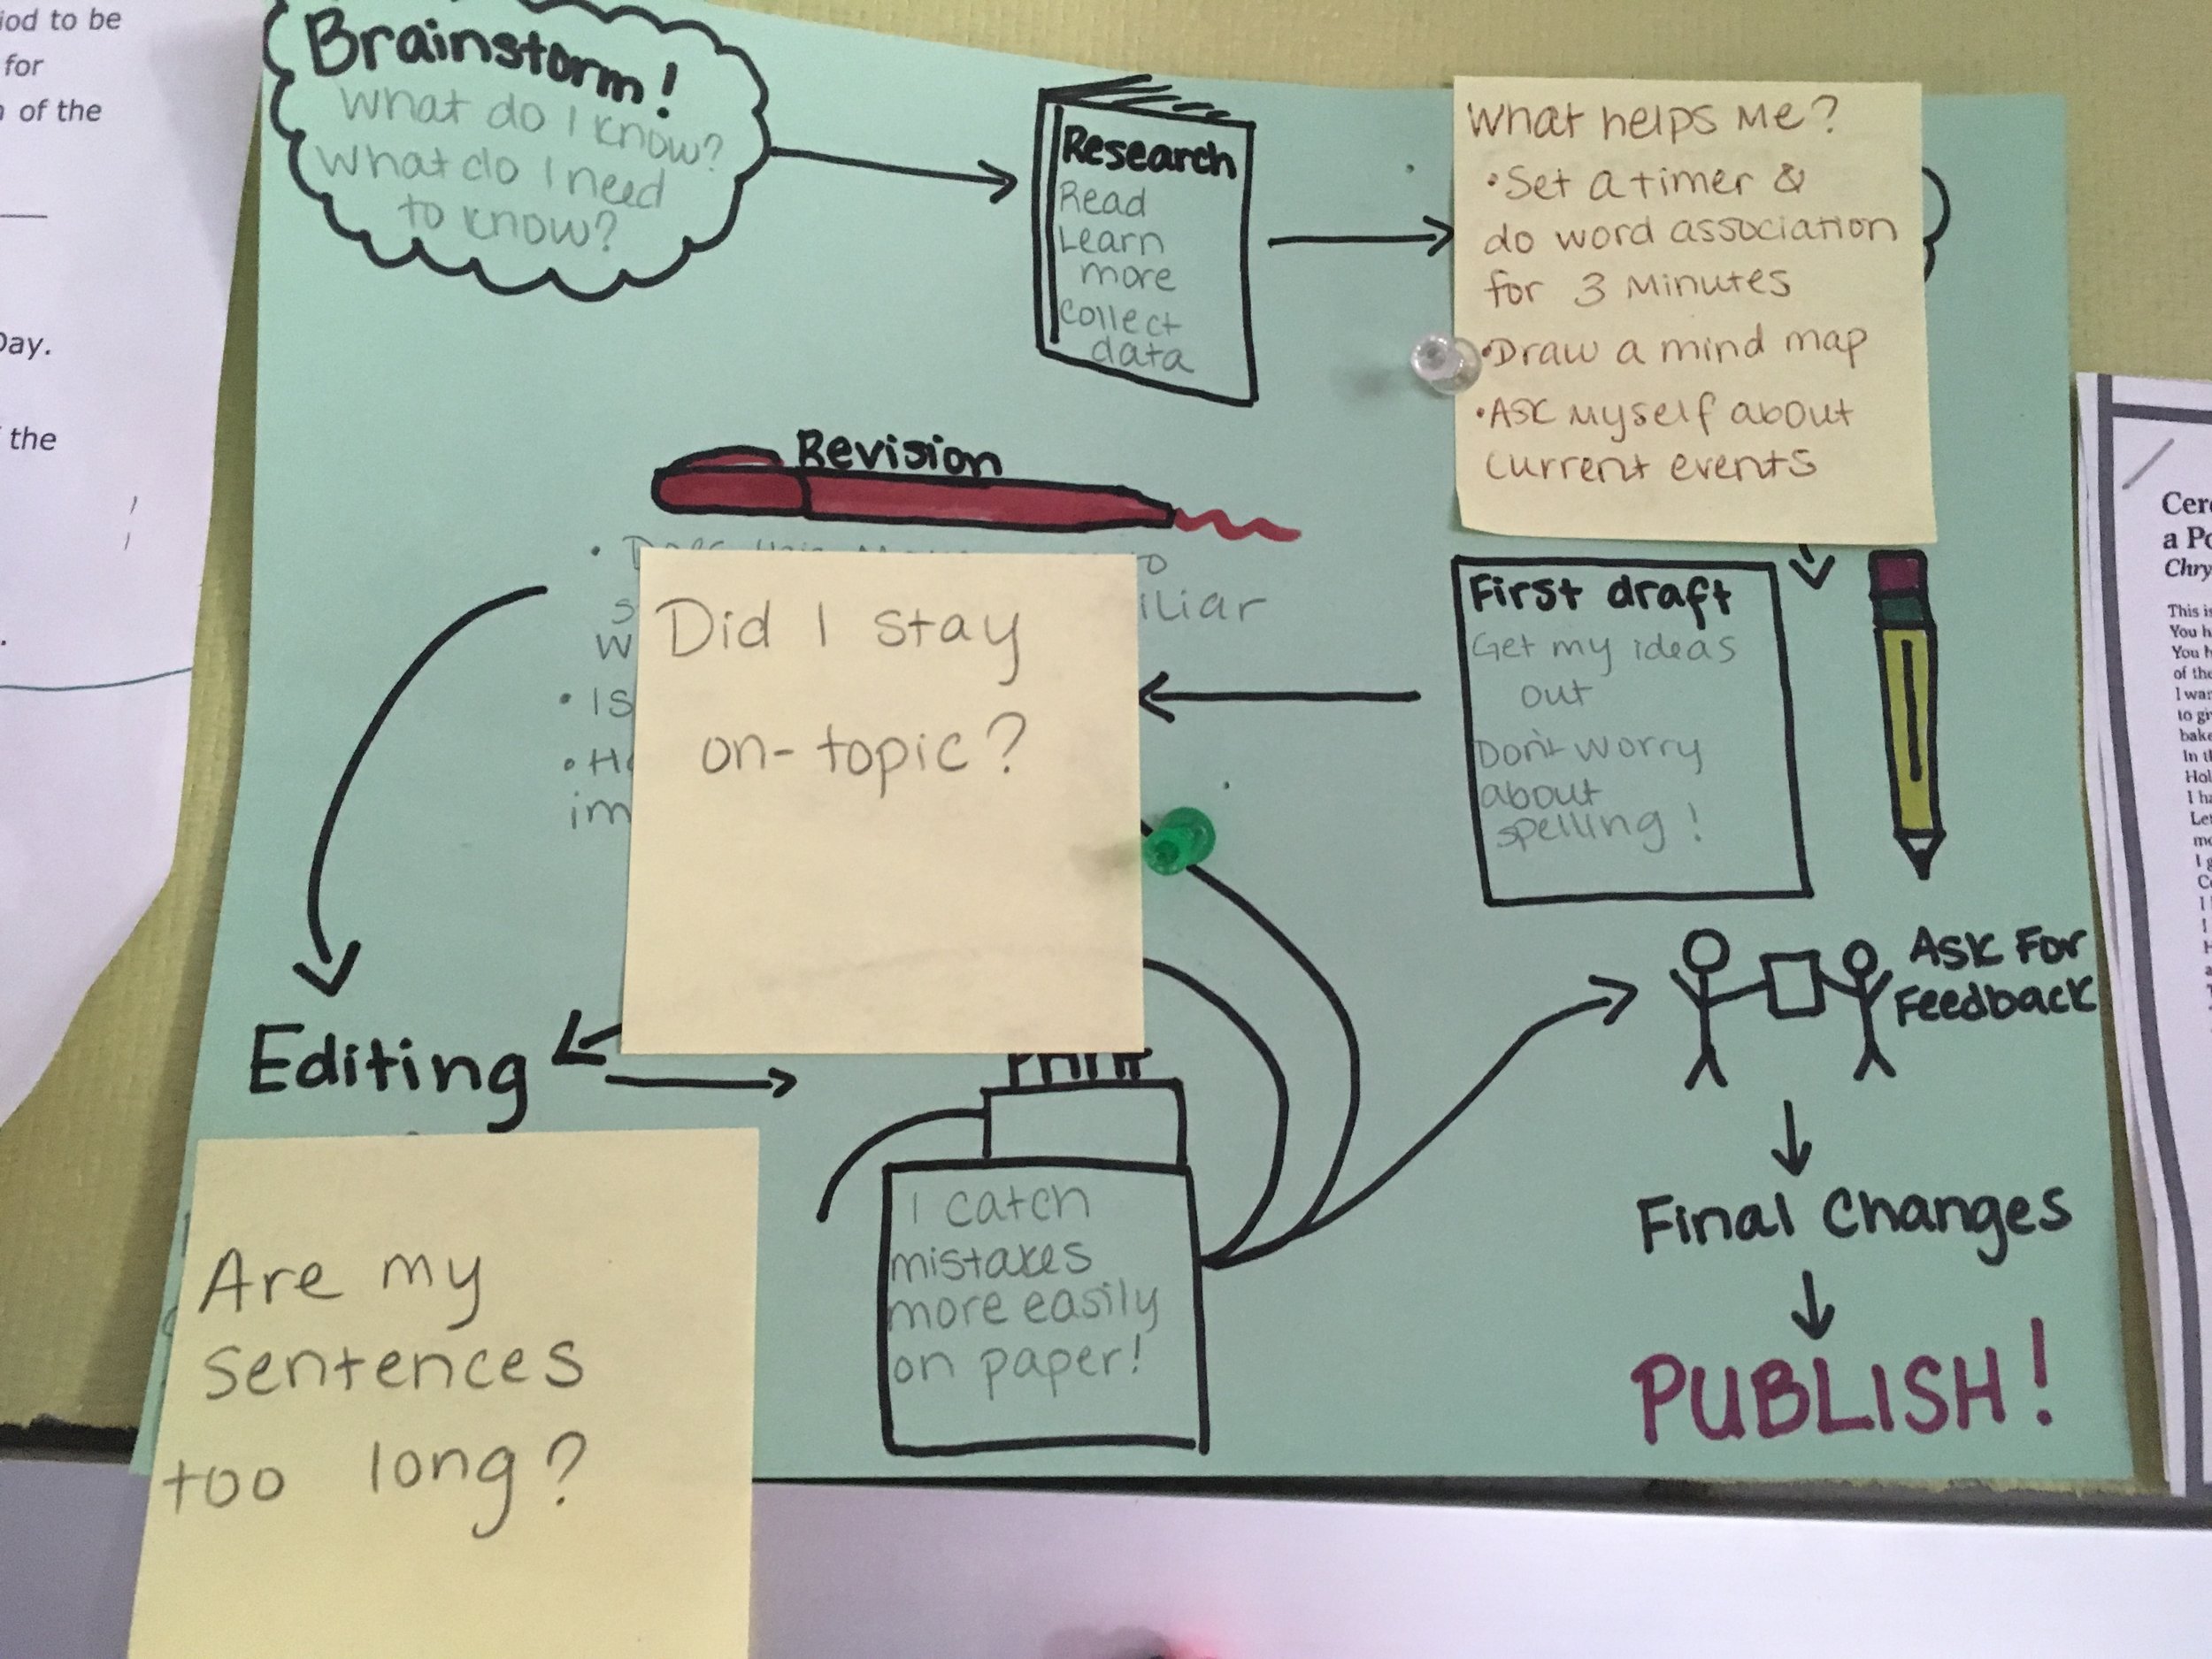 iod to be
for
of the
Day.
the
Brainstorm!
What do I know?
What do I need
to know?
Research
Read
Learn
more
Collect
data
What helps Me?
•Set a timer &
do word association
for 3 Minutes
•Draw a mind map
•Ask Myself about
current events
Revision
Did I stay
on-topic?
• Is
First draft
Get my ideas
out
Don't worry
about
spelling!
Editing
Are my
sentences
too long?
Print
I catch
mistakes
more easily
on paper!
Ask For
Feedback
Final Changes
PUBLISH!
Cer
a Po
Chry
This is
You h
You h
of the
I wan
to gi
bake
In th
Hol
I ha
Let